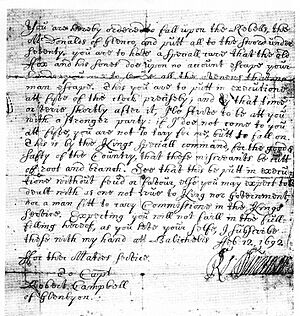 You are hereby ordered to fall upon the Rebells, the
McDonalds of Glenco, and putt all to the sword under
seventy. you are to have a speciall care that the old
ffox and his sones doe upon no account escape your
hands you are to all the avenues that no
man escape. This you are to putt in execution
att fyve of the clock precisely; and by that time,
or very shortly after it, I'le strive to be att you
with a stronger party: if I doe not come to you
att fyve, you are not to tary for me, butt to fall on
This is by the Kings speciall command, for the good &
safty of the Country, that these miscreants be cutt
off root and branch. See that this be putt in execu
tione without feud or favour, else you may expect to be
dealt with as one not true to King nor Government,
nor a man fitt to cary Commissione in the Kings
service. Expecting you will not faill in the full
filling hereof, as you love your selfe, I subscribe
these with my hand att Balicholis Feb: 12, 1692
For their Maties service.
To Capt
Robert Campbell
of Glenlyon
R Duncanson